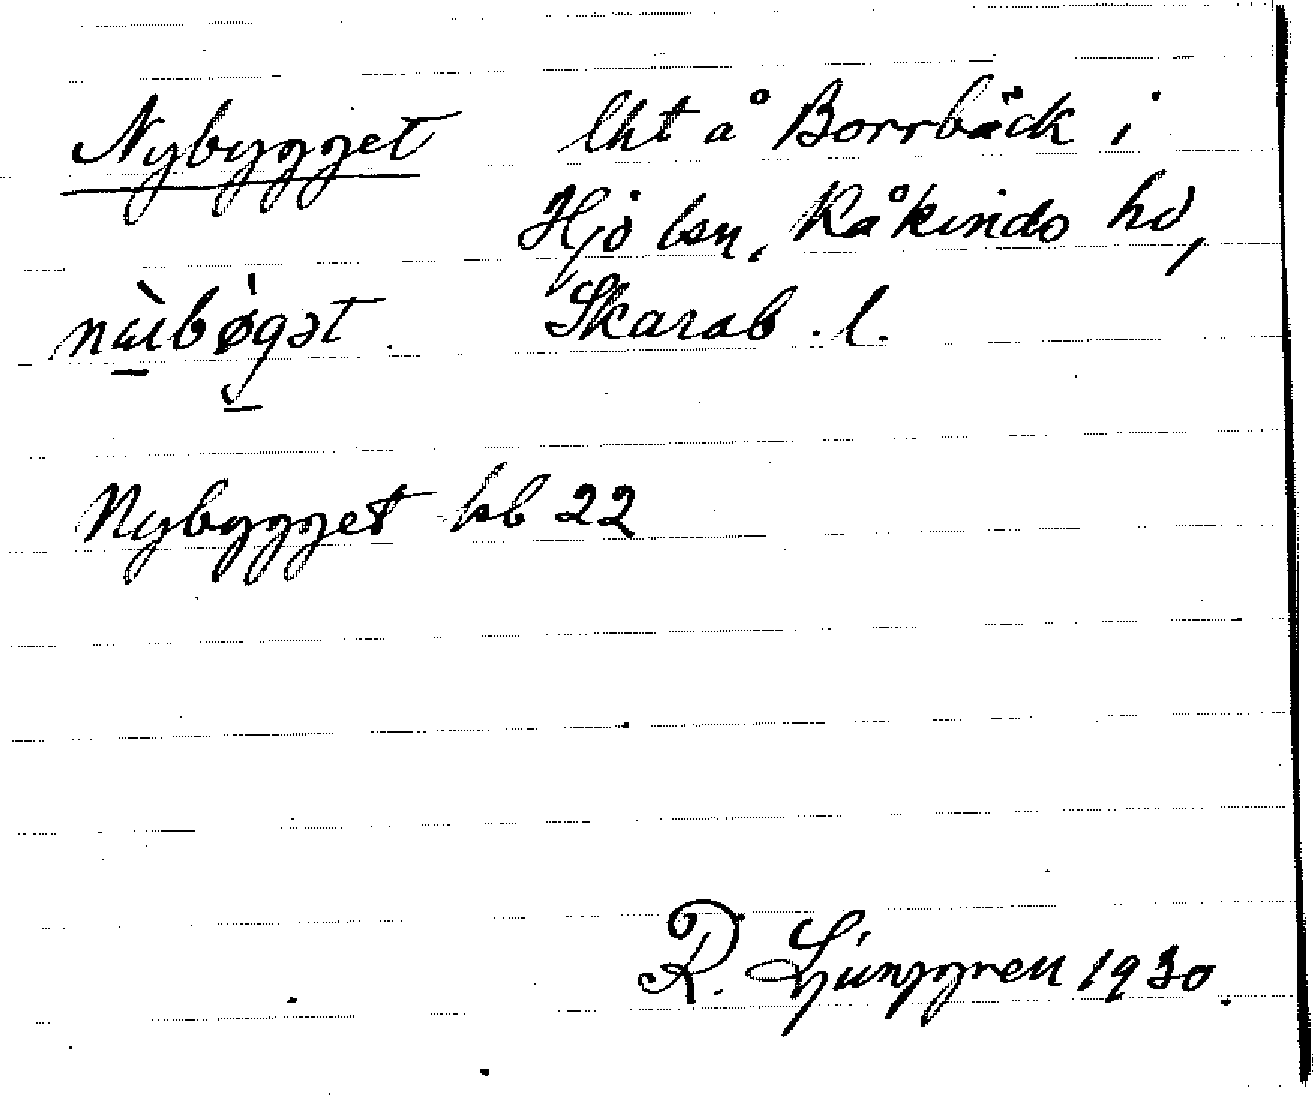 Nybygget lht å Borrbäck i
Hjo lsn, Kåkinds hd,
Skarab. l.
Nybygget hb 22
R. Ljunggren 1930.